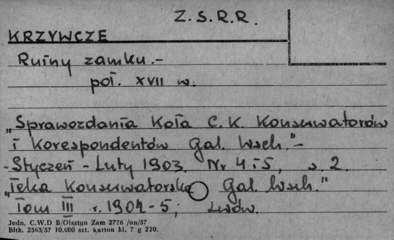 Z.S.R.R.
KRZYWCZE
Ruiny zamku.-
poł. XVII w.
„Sprawozdania Koła C.K. Konserwatorów
i Korespondentów Gal. Wsch."-
-Styczeń - Luty 1903. Nr 4 i 5, s. 2.
„Teka Konserwatorska Gal. Wsch."
Tom III r. 1904-5; Lwów.
Jedn. C.W.D B/Olsztyn Zam 2776 /on/57
Bltk. 2563/57 10.000 szt. karton kl. 7 g 220.